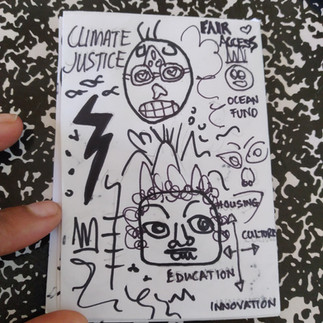 CLIMATE
JUSTICE
FAIR
ACCESS
OCEAN
FUND
HOUSING
CULTURE
EDUCATION
INNOVATION